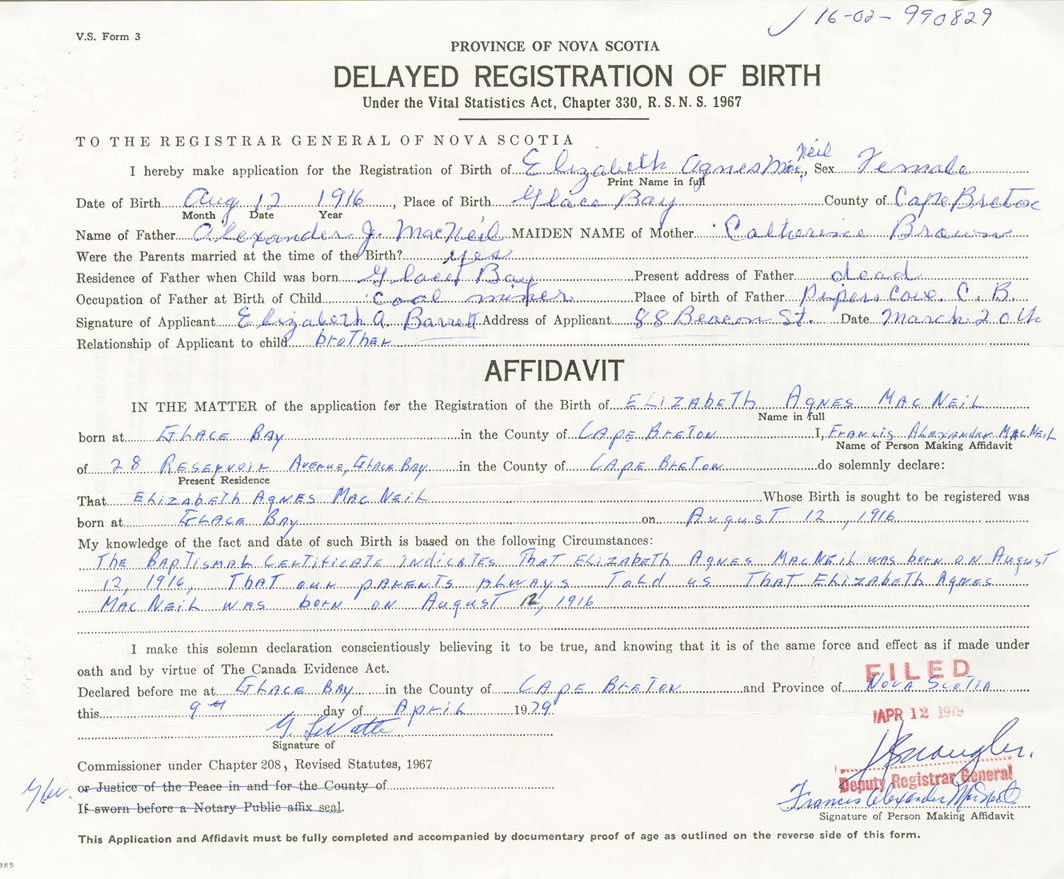 16-02-990829
V.S. Form 3
PROVINCE OF NOVA SCOTIA
DELAYED REGISTRATION OF BIRTH
Under the Vital Statistics Act, Chapter 330, R.S.N.S. 1967
TO THE REGISTRAR GENERAL OF NOVA SCOTIA
I hereby make application for the Registration of Birth of Elizabeth Agnes Mac Neil, Sex Female
Print Name in full
Date of Birth Aug 12 1916, Place of Birth Glace Bay County of Cape Breton
Month Date Year
Name of Father Alexander J. MacNeil MAIDEN NAME of Mother Catherine Brown
Were the Parents married at the time of the Birth? yes
Residence of Father when Child was born Glace Bay Present address of Father dead
Occupation of Father at Birth of Child coal miner Place of birth of Father Pipers Cove. C.B.
Signature of Applicant Elizabeth A. Barrett Address of Applicant 88 Beacon St. Date March 20th
Relationship of Applicant to child brother
AFFIDAVIT
IN THE MATTER of the application for the Registration of the Birth of Elizabeth Agnes MacNeil
Name in full
born at Glace Bay in the County of Cape Breton I, Francis Alexander MacNeil
Name of Person Making Affidavit
of 28 Reservoir Avenue, Glace Bay in the County of Cape Breton do solemnly declare:
Present Residence
That Elizabeth Agnes MacNeil Whose Birth is sought to be registered was
born at Glace Bay on August 12, 1916
My knowledge of the fact and date of such Birth is based on the following Circumstances:
The Baptismal Certificate indicates That Elizabeth Agnes MacNeil was born on August
12, 1916, That our parents always Told us That Elizabeth Agnes
MacNeil was born on August 12, 1916
I make this solemn declaration conscientiously believing it to be true, and knowing that it is of the same force and effect as if made under
oath and by virtue of The Canada Evidence Act.
FILED
Declared before me at Glace Bay in the County of Cape Breton and Province of Nova Scotia
this 9th day of April 1979
APR 12 1979
Signature of
Commissioner under Chapter 208, Revised Statutes, 1967
or Justice of the Peace in and for the County of
Deputy Registrar General
If sworn before a Notary Public affix seal.
Francis Alexander MacNeil
Signature of Person Making Affidavit
This Application and Affidavit must be fully completed and accompanied by documentary proof of age as outlined on the reverse side of this form.